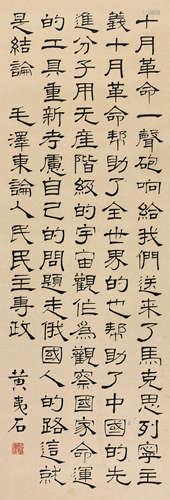 十月革命一聲砲响給我們送來了馬克思列寧主
義十月革命帮助了全世界的也帮助了中國的先
進分子用无產階級的宇宙觀作為觀察國家命運
的工具重新考慮自己的問題走俄國人的路這就
是結論 毛澤東論人民民主專政 黃夷石